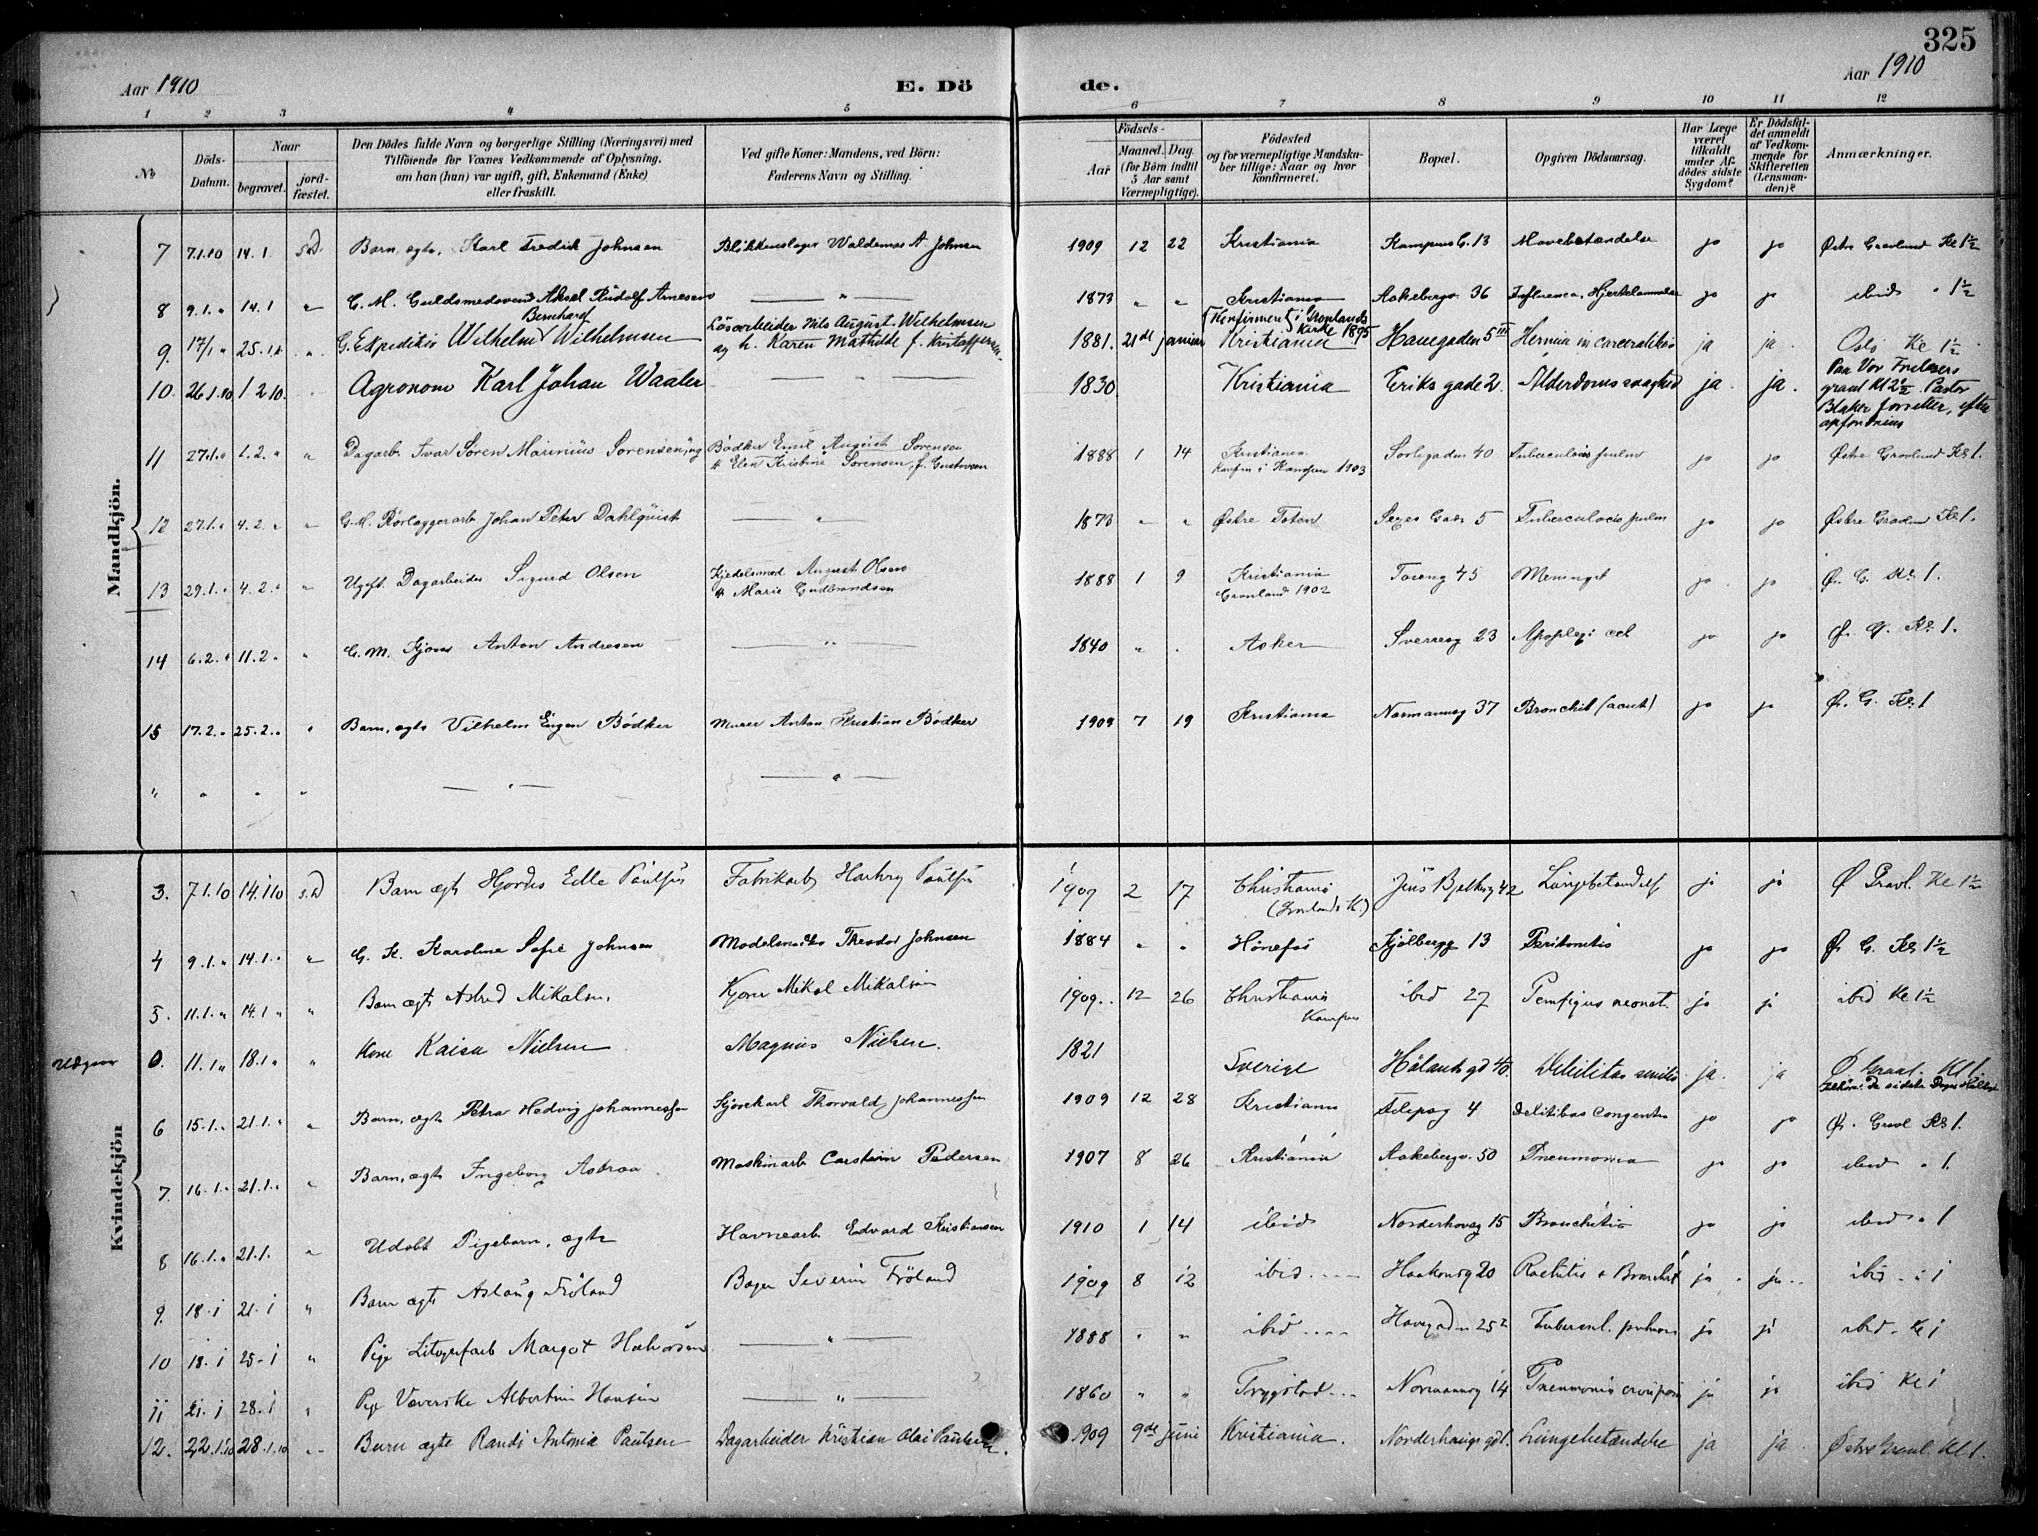 325
Aar 1910
E. Dö
de.
Aar 1910
1 2 3 4 5 6 7 8 9 10 11 12
No
Döds-Datum.
Naar
begravet.
jord-fæstet.
Den Dödes fulde Navn og borgerlige Stilling (Næringsvei) med
Tilföiende for Voxnes Vedkommende af Oplysning,
om han (hun) var ugift, gift, Enkemand (Enke)
eller fraskilt.
Ved gifte Koner: Mandens, ved Börn:
Faderens Navn og Stilling.
Födsels-
Aar
Maaned. Dag.
(for Börn indtil
5 Aar samt
Værnepligtige).
Födested
og for værnepligtige Mandska-
ber tillige: Naar og hvor
konfirmeret.
Bopæl.
Opgiven Dödsaarsag.
Har Læge
været
tilkaldt
under Af-
dödes sidste
Sygdom?
Er Dödsfal-
det anmeldt
af Vedkom-
mende for
Skifteretten
(Lensman-
den)?
Anmærkninger.
Mandkjön.
7 7.1.10 14.1. Barn, ægte, Karl Fredrik Johnsen Blikkenslager Waldemar A. Johnsen 1909 12 22 Kristiania Kampens G. 13 Mavebetændelse jo jo Østre Gravlund Kl 1½
8 9.1. " 14.1 " G. M. Guldsmedsvend Aksel Rudolf Arnesen — " — 1873 " " Kristiania Aakebergv. 36 Influenca, jo jo ibid " 1½
9 17/1 " 25.1. " G. Expeditør Wilhelm Bernhard Wilhelmsen Løsarbeider Nils August Wilhelmsen
og h. Karen Mathilde f. Kristoffersen 1881. 21de januar Kristiania
(Konfirmeret i Grønlands
Kirke 1895 Havegaden 5 III Hernia ja ja. Oslo Kl 1½
10. 26.1.10 1.2.10. Agronom Karl Johan Waaler — " — 1830. Kristiania Eriks gade 2. Alderdomssvaghed ja. ja. Paa Vor Frelsers
gravl Kl 2½. Pastor
Blaker forretter, efter
11 27.1. " 1.2. " " Dagarb. Ivar Søren Marinius Sørensen, ug Bødker Emil August Sørensen
& Elen Kristine Sørensen, f. Gustavsen 1888 1 14 Kristiania
Konfirm i Kampen 1903 Sorligaden 40 Tuberculosis pulm jo jo Østre Gravlund Kl 1.
12 27.1. " 4.2. " " G. M. Rørlæggerarb Johan Peter Dahlquist — " — 1873 " " Østre Toten 5 Tuberculosis pulm jo jo Østre Gravlund Kl 1.
13 29.1. " 4.2. " " Ugift Dagarbeider Sigurd Olsen Kjedelsmed August Olsen
& Marie Gudbrandsen 1888 1 9 Kristiania
Grønland 1902 Toieng 45 Meningit jo jo Ø. G. Kl 1.
14 6.2. " 11.2. " " G. M. Anton Andresen — " — 1840 " " Asker Sverresg 23 Apoplexi cel jo jo Ø. G. Kl 1.
15 17.2. " 25.2. " " Barn, ægte Vilhelm Eugen Bødker Murer Anton Kristian Bødker 1909 7 19 Kristiania Normannsg 37 Bronchit (acut) jo jo Ø. G. Kl 1
" " " " — " — — " —
Kvindekjön
3. 7.1.10 14.1.10 Barn ægte Hjørdis Paulsen Fabrikarb Paulsen 1909 2 17 Christiania
(Grønlands K.) Jens Bjelkesg 42 Lungebetændelse jo jo Ø Gravl. Kl 1½
4 9.1. " 14.1. " " G. K. Karoline Sofie Johnsen Theodor Johnsen 1884 " " Hønefos Kjølbergg 13 Peritonitis jo jo Ø. G. Kl 1½
5. 11.1. " 14.1 " " Barn ægte Astrid Mikalsen Mikal Mikalsen 1909. 12 26 Christiania
Kampen ibid 27 Pemfigus neonat. jo jo ibid Kl 1½
Udgaar 0. 11.1. " 18.1. " " Kone Kaisa Nielsen Magnus Nielsen. 1821 Sverige Hølands gd 40. Debilitas senilis ja. ja Ø Gravl. Kl 1
6 15.1. " 21.1. " " Barn, ægte Petra Hedvig Johannessen Kjørekarl Thorvald Johannessen 1909 12 28 Kristiania 4 jo jo Ø. Gravl Kl 1.
7. 16.1. " 21.1. " " Barn, ægte Ingeborg Astrea Maskinarb Pedersen 1907 8 26 Kristiania Aakebergv. 50 Pneumonia jo jo ibid " 1.
8 16.1. " 21.1. " Udøbt Pigebarn, ægte Havnearb Edvard Kristiansen 1910 1 14 ibid Norderhovsg 15 Bronchitis jo jo ibid " 1
9. 18.1 21.1 " Barn ægte Aslaug Frøland Bager Severin Frøland 1909 8 12 ibid Haakonsg 20 Rachitis & Bronchit jo jo ibid. " 1
10 18.1 25.1 " Pige Litografiarb Margot Halvorsen — " — 1888 " " ibid Havegaden 25² Tubercul. pulmon jo jo ibid. Kl 1
11 21.1 28.1 " Pige Væverske Albertine Hansen — " — 1860 " " Trygstad Normannsg 14 Pneumonia crouposa jo jo ibid Kl 1
12. 22.1.10 28.1.10 " Barn ægte Randi Antonia Paulsen Dagarbeider Kristian Olai Paulsen. 1909 9de juni Kristiania. Norderhougs gd Lungebetændelse ja ja. Østre Gravl. Kl 1.